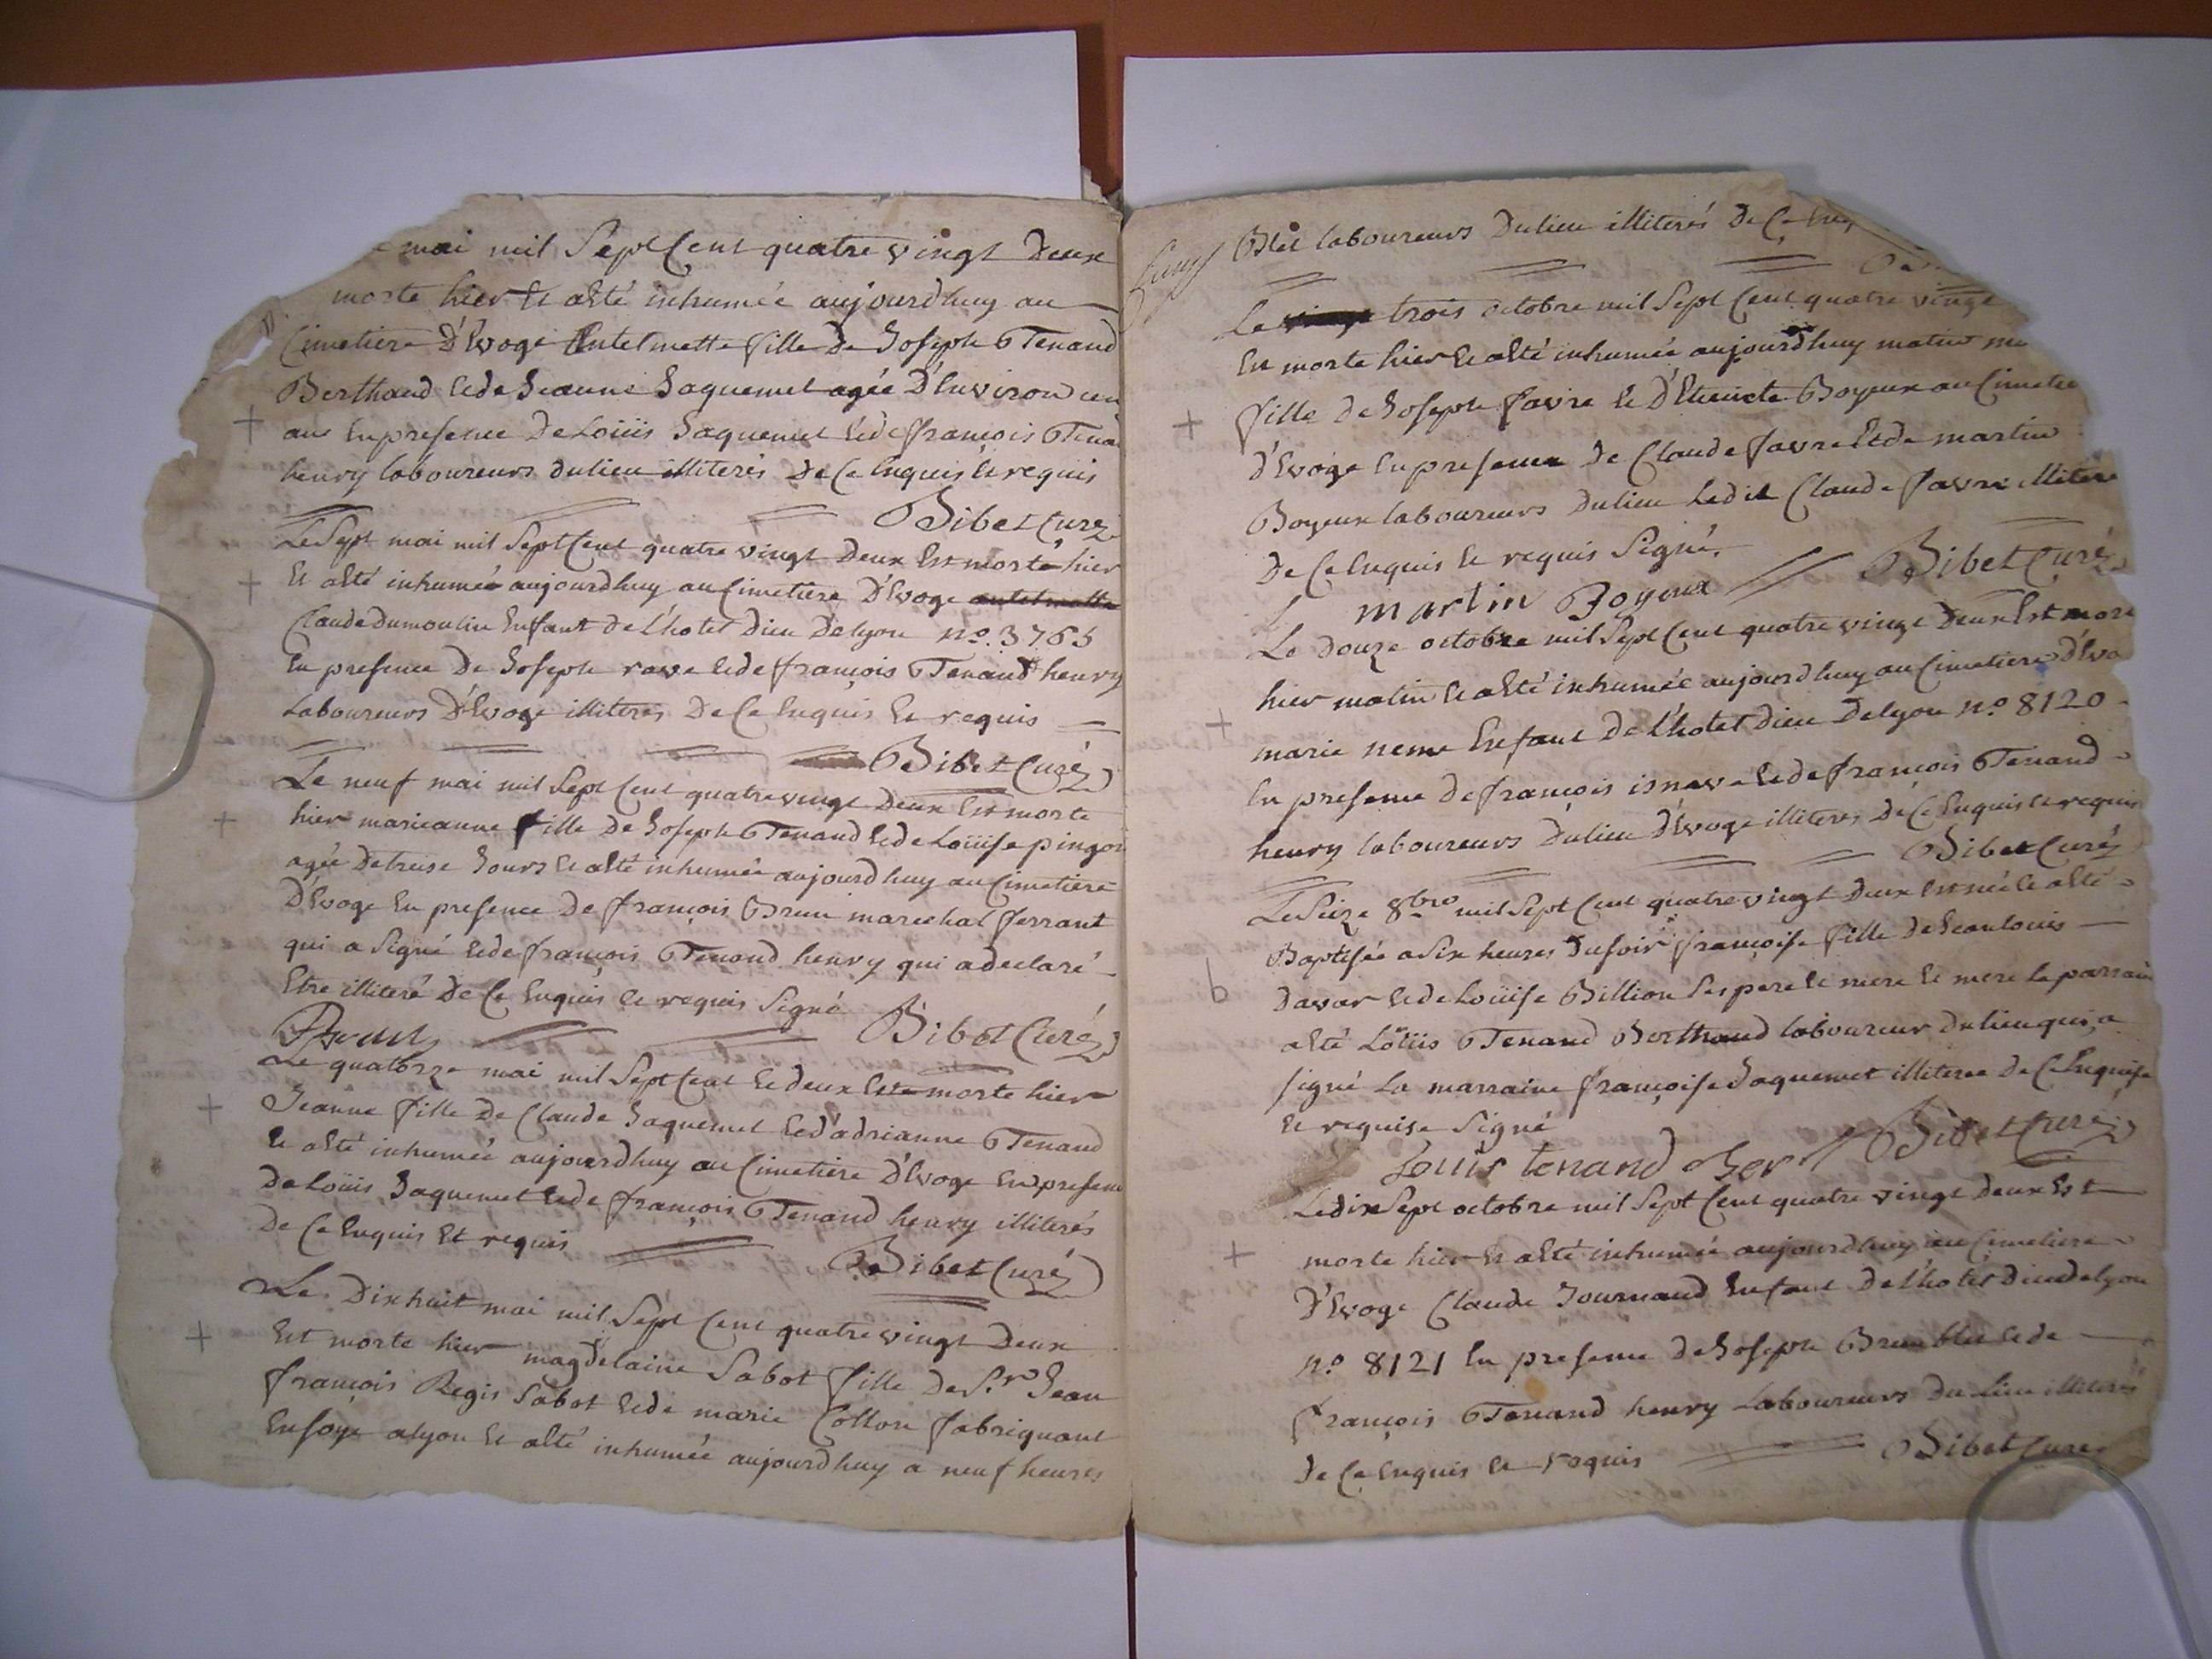 mai mil Sept Cent quatre vingt Deux
morte hier Et a Eté inhumée aujourdhuy au
Cimetiere D'Evoge Entelmette fille De Joseph Tenand
Berthand Et de Jeanne Jaquemet agée D'Environ un
ans En presence De Loüis Jaquemet Et de françois Tena
henry laboureurs du lieu illiterés De Ce Enquis Et requis
Bibet Curé
Le Sept mai mil Sept Cent quatre vingt Deux Est morte hier
Et a Eté inhumée aujourdhuy au Cimetiere D'Evoge antelmette
Claude Dumoulin Enfant de L'hotel Dieu De lyon n.o 3765
En presence De Joseph rave Et de françois Tenand henry
Laboureurs D'Evoge illiteres De Ce Enquis Et requis
Bibet Curé
Le neuf mai mil Sept Cent quatre vingt Deux Est morte
hier marieanne fille De Joseph Tenand Et de Loüise pingon
agée De treise Jours Et a Eté inhumée aujourdhuy au Cimetiere
D'Evoge En presence De françois Brun marechal ferrant
qui a Signé Et de françois Tenand henry qui a declaré
Etre illiteré De Ce Enquis Et requis Signé
Brun Bibet Curé
Le quatorze mai mil Sept Cent Et deux Est morte hier
Jeanne fille De Claude Jaquemet Et d'adrianne Tenand
Et a Eté inhumée aujourdhuy au Cimetiere D'Evoge En presence
De Loüis Jaquemet Et de françois Tenand henry illiterés
De Ce Enquis Et requis
Bibet Curé
Le Dixhuit mai mil Sept Cent quatre vingt Deux
Est morte hier magdelaine Sabot fille De S.r Jean
françois Regis Sabot Et de marie Cotton fabriquant
En soye a lyon Et a Eté inhumée aujourdhuy a neuf heures
Blet laboureurs Du lieu illiterés De Ce Enq
Le trois octobre mil Sept Cent quatre vingt
Est morte hier Et a Eté inhumée aujourdhuy matin
fille De Joseph favre Et D'Etiennete Boyeux au Cimetie
d'Evoge En presence De Claude favre Et de martin
Boyeux laboureurs Du lieu Ledit Claude favre illiteré
De Ce Enquis Et requis Signé
martin Boyeux Bibet Curé
Le Douze octobre mil Sept Cent quatre vingt Deux Est mort
hier matin Et a Eté inhumée aujourdhuy au Cimetiere D'Evo
marie neme Enfant De L'hotel Dieu De lyon n.o 8120
En presence De françois isnave Et de françois Tenand
henry laboureurs Du lieu D'Evoge illiteres De Ce Enquis Et requis
Bibet Curé
Le Seize 8bre mil Sept Cent quatre vingt Deux Est née Et a Eté
Baptisée a Six heures Du soir françoise fille De Jean louis
Davar Et de Loüise Billion Ses pere Et mere Et mere Le parrain
a Eté Loüis Tenand Berthand laboureur Du lieu qui a
signé La marraine françoise Jaquemet illiteree De Ce Enquise
Et requise Signé
Louis tenand ber Bibet Curé
Le dix Sept octobre mil Sept Cent quatre vingt Deux Est
morte hier Et a Eté inhumée aujourdhuy au Cimetiere
D'Evoge Claude Journaud Enfant De L'hotel Dieu de lyon
n.o 8121 En presence De Joseph Brun blet Et de
françois Tenand henry Laboureurs Du lieu illiterés
De Ce Enquis Et requis Bibet Curé